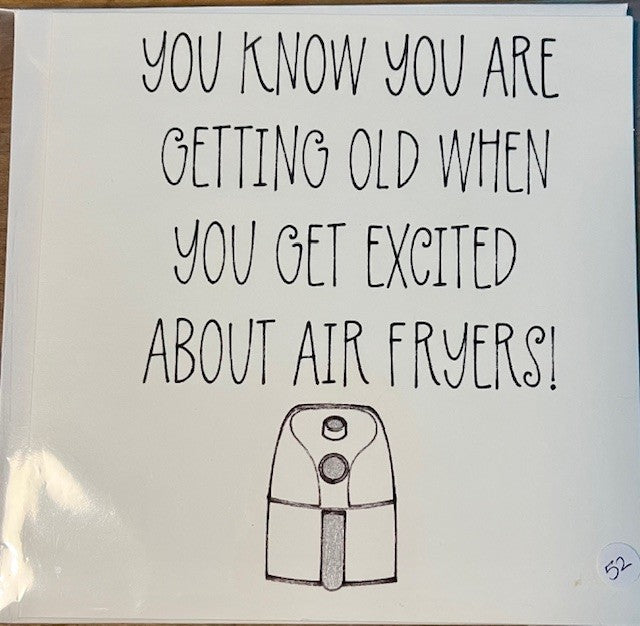 YOU KNOW YOU ARE
GETTING OLD WHEN
YOU GET EXCITED
ABOUT AIR FRYERS!
52